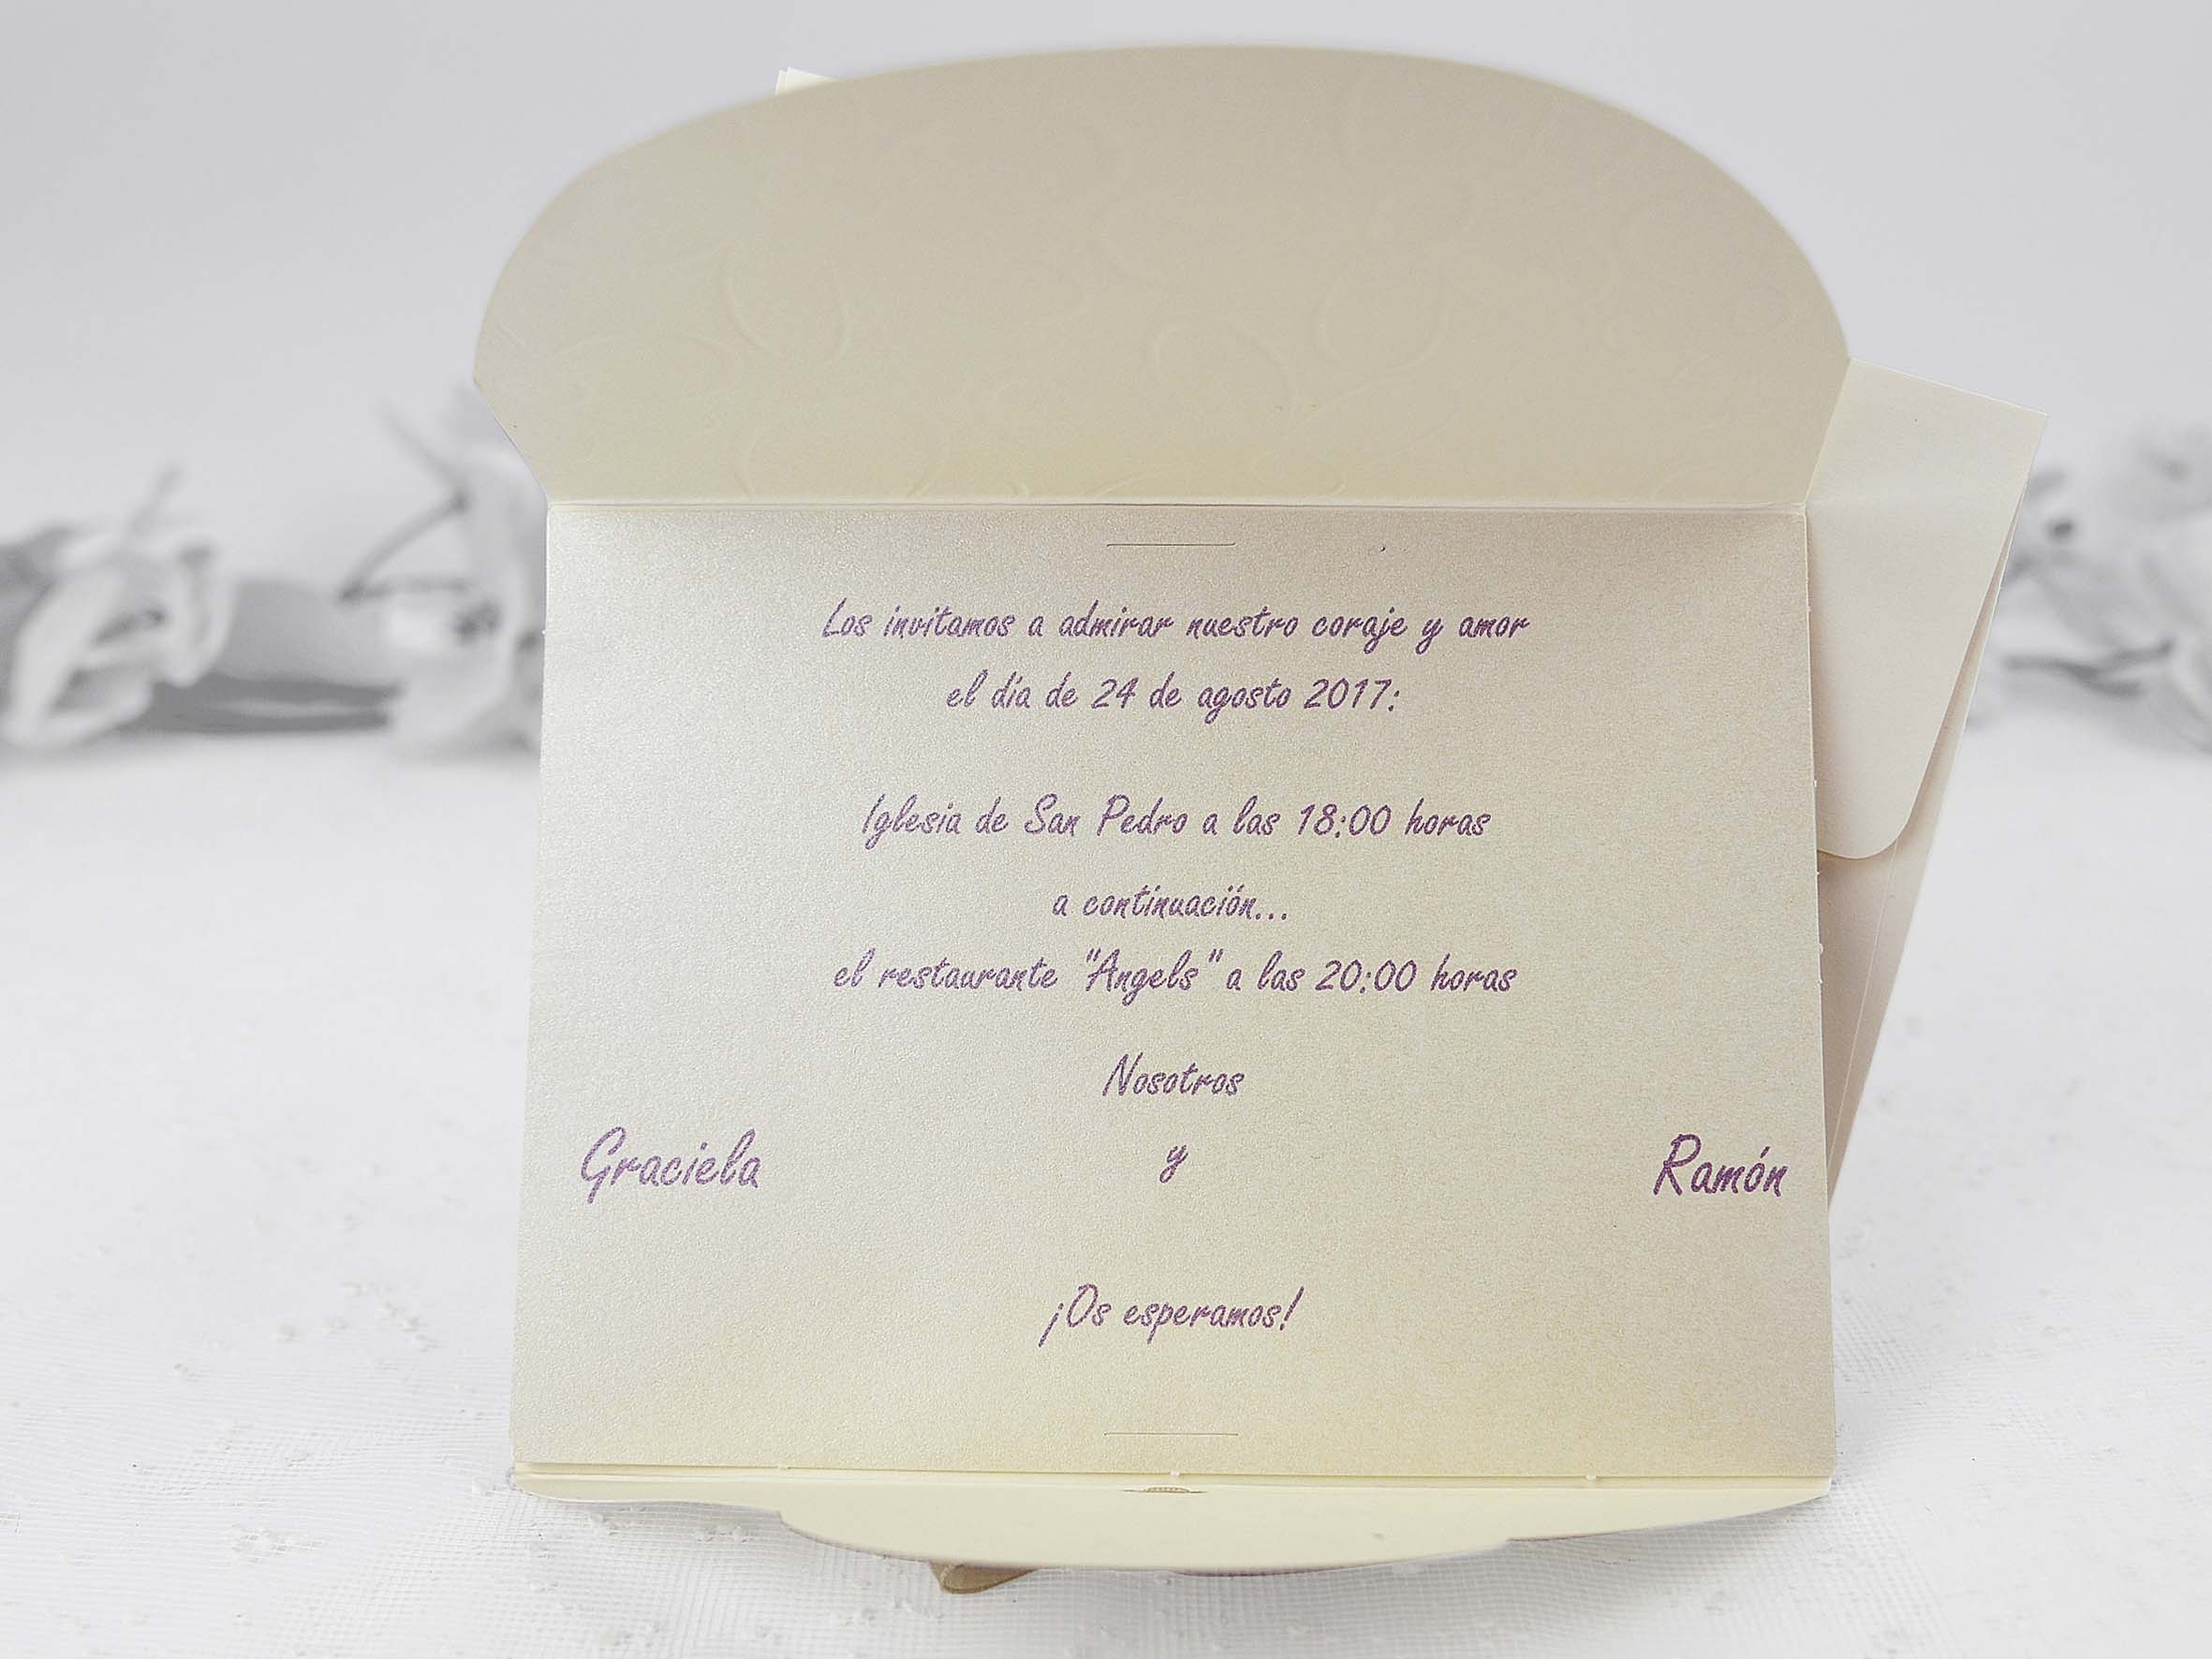 Los invitamos a admirar nuestro coraje y amor
el día de 24 de agosto 2017:
Iglesia de San Pedro a las 18:00 horas
a continuación...
el restaurante "Angels" a las 20:00 horas
Nosotros
Graciela y Ramón
¡Os esperamos!